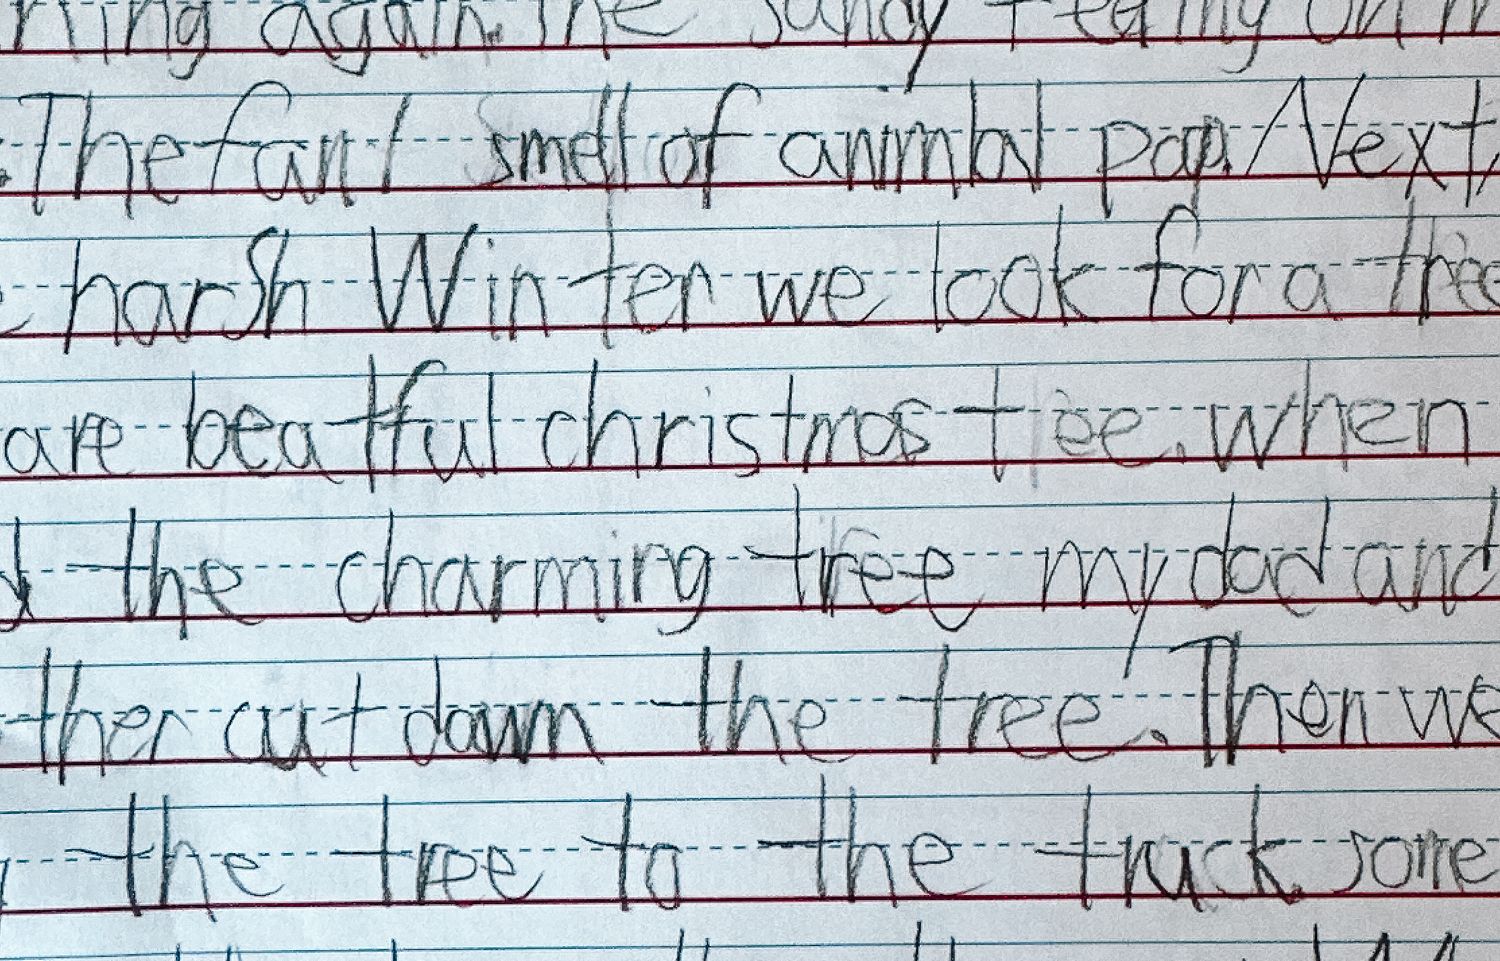 again. The sandy feeling on
The fant smell of animbal pop. Next,
harsh Winter we look for a tree
are beatful christmas tree. when
the charming tree my dad and
ther cut down the tree. Then we
the tree to the truck. some